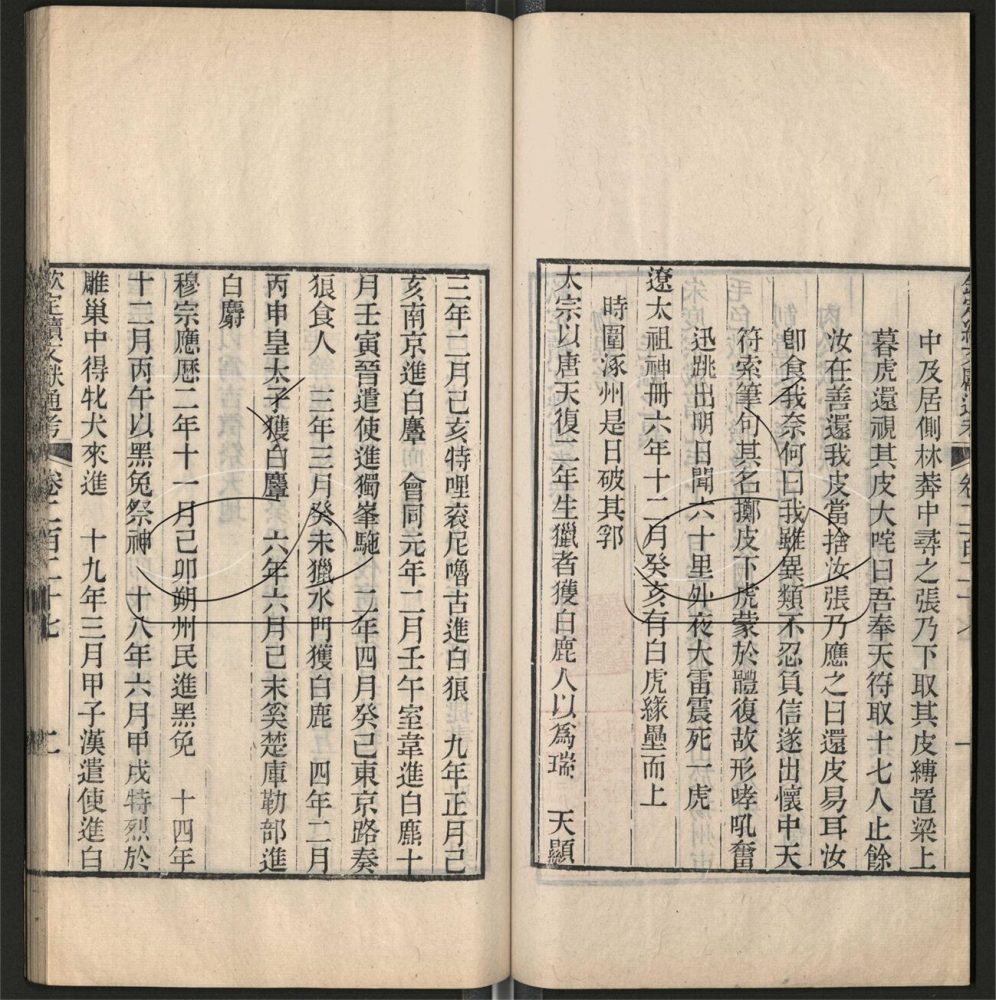 欽定續文獻通考 卷二百二十七
中及居側林莽中尋之張乃下取其皮縛置梁上
暮虎還視其皮大咤曰吾奉天符取十七人止餘
汝在善還我皮當捨汝張乃應之曰還皮易耳汝
卽食我奈何曰我雖異類不忍負信遂出懷中天
符索筆句其名擲皮下虎蒙於體復故形哮吼奮
迅跳出明日聞六十里外夜大雷震死一虎
遼太祖神冊六年十二月癸亥有白虎緣壘而上
時圍涿州是日破其郛
太宗以唐天復二年生獵者獲白鹿人以爲瑞 天顯
三年二月己亥特哩袞尼嚕古進白狼 九年正月己
亥南京進白麞 會同元年二月壬午室韋進白麃十
月壬寅晉遣使進獨峯駞 二年四月癸巳東京路奏
狼食人 三年三月癸未獵水門獲白鹿 四年二月
丙申皇太子獲白麞 六年六月己未奚楚庫勒部進
白麝
穆宗應厯二年十一月己卯朔州民進黑兔 十四年
十二月丙午以黑兔祭神 十八年六月甲戌特烈於
雕巢中得牝犬來進 十九年三月甲子漢遣使進白
欽定續文獻通考 卷二百二十七